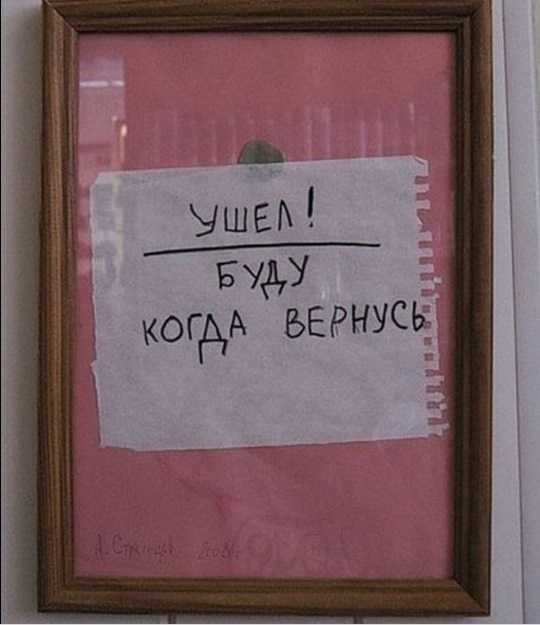 УШЕЛ!
БУДУ
КОГДА ВЕРНУСЬ
А. Стрельцов